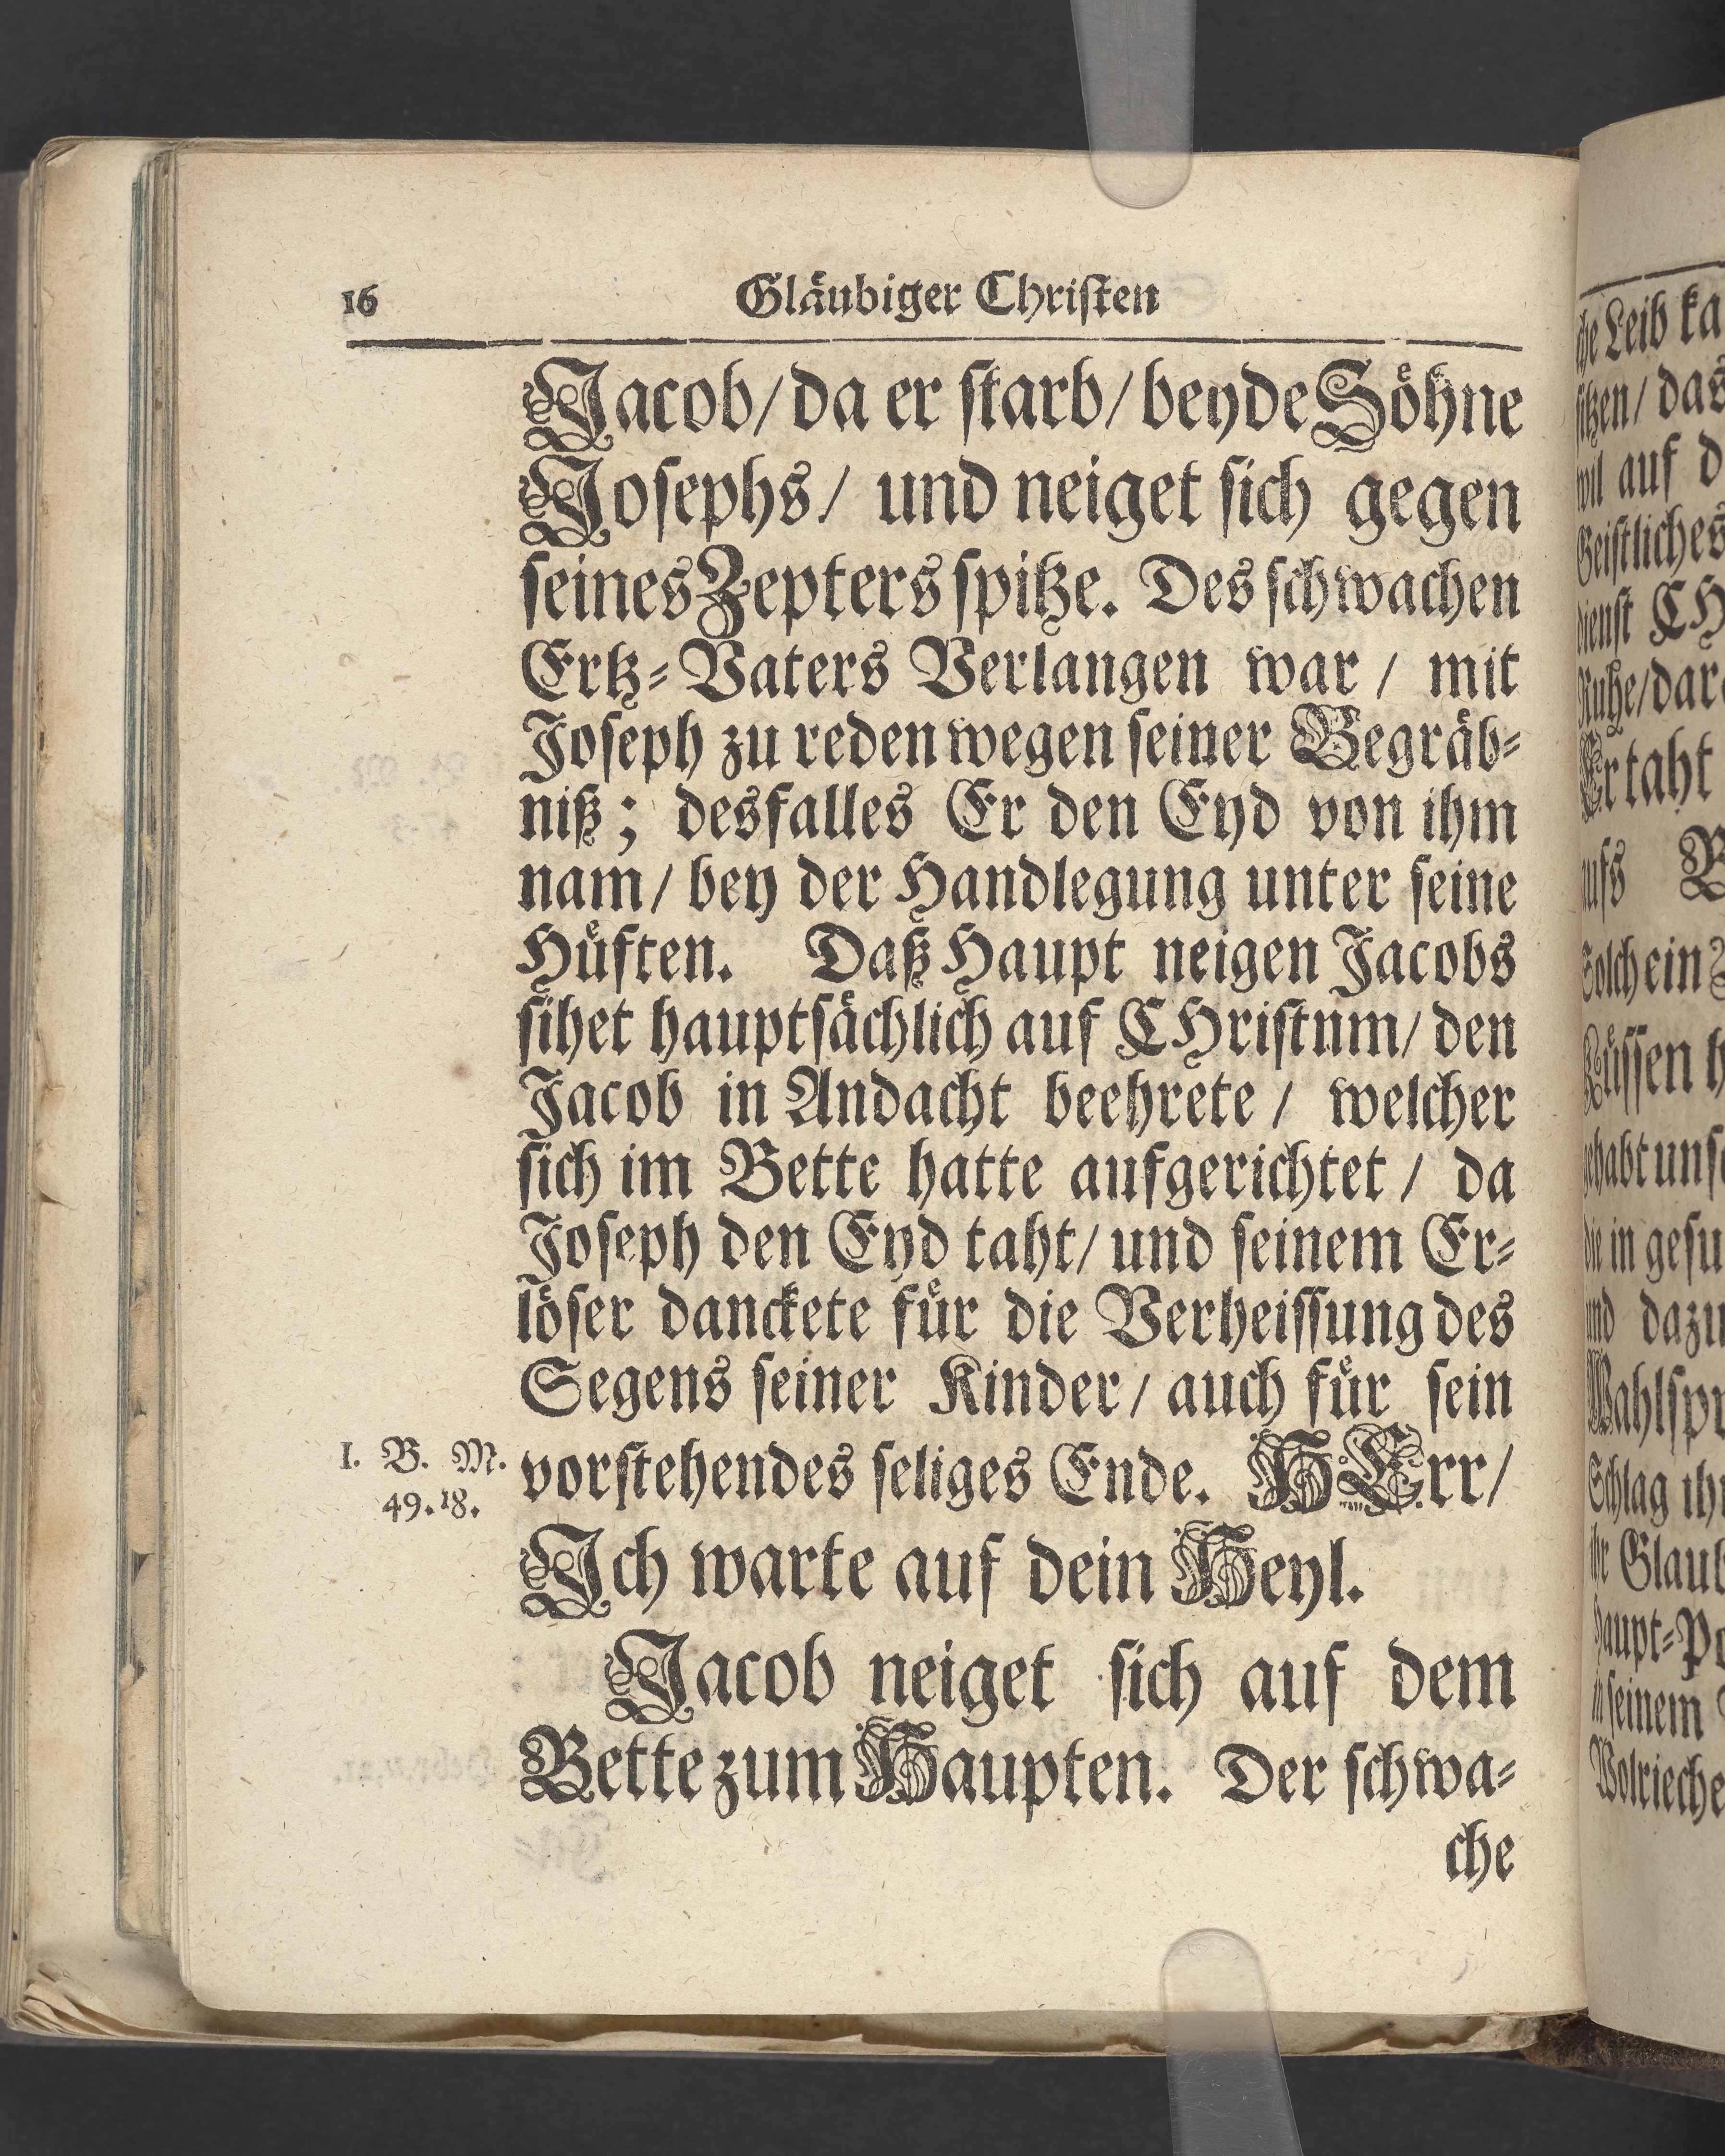 16
Glaͤubiger Chriſten
Jacob/ da er ſtarb/ beyde Soͤhne
Joſephs/ und neiget ſich gegen
ſeines Zepters ſpitze. Des ſchwachen
Ertz⸗Vaters Verlangen war / mit
Joſeph zu reden wegen ſeiner Begraͤb⸗
niß; desfalles Er den Eyd von ihm
nam/ bey der Handlegung unter ſeine
Huͤften. Daß Haupt neigen Jacobs
ſihet hauptſaͤchlich auf CHriſtnm/ den
Jacob in Andacht beehrete / welcher
ſich im Bette hatte aufgerichtet / da
Joſeph den Eyd taht/ und ſeinem Er⸗
loͤſer danckete fuͤr die Verheiſſung des
Segens ſeiner Kinder/ auch fuͤr ſein
I. B. M.
49.18.
vorſtehendes ſeliges Ende. HErr/
Ich warte auf dein Heyl.
Jacob neiget ſich auf dem
Bette zum Haupten. Der ſchwa⸗
che
che Leib ka
ſitzen/ das
wil auf d
Geiſtliches
dienſt CH
Ruhe/ dar
Er taht
aufs
Solch ein
Kuͤſſen h
gehabt unſ
die in geſu
und dazu
Wahlſpr
Schlag ih
ihr Glaub
haupt⸗Po
in ſeinem
Wolrieche